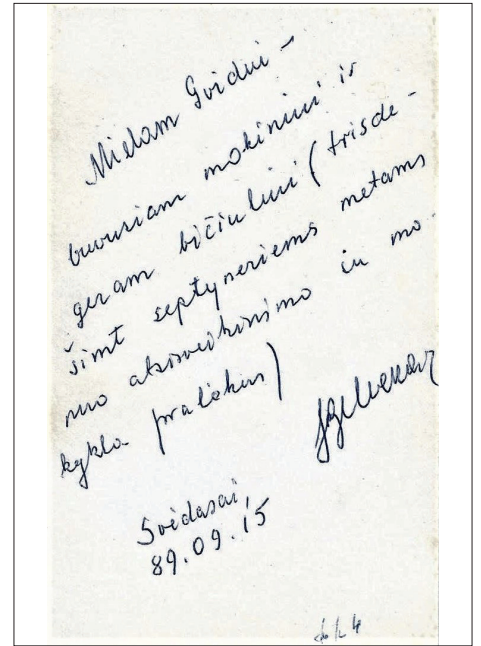 Mielam Gvidui –
buvusiam mokiniui ir
geram bičiuliui (trisde-
šimt septyneriems metams
nuo atsisveikinimo su mo-
kykla praėjus)
Svėdasai,
89.09.15